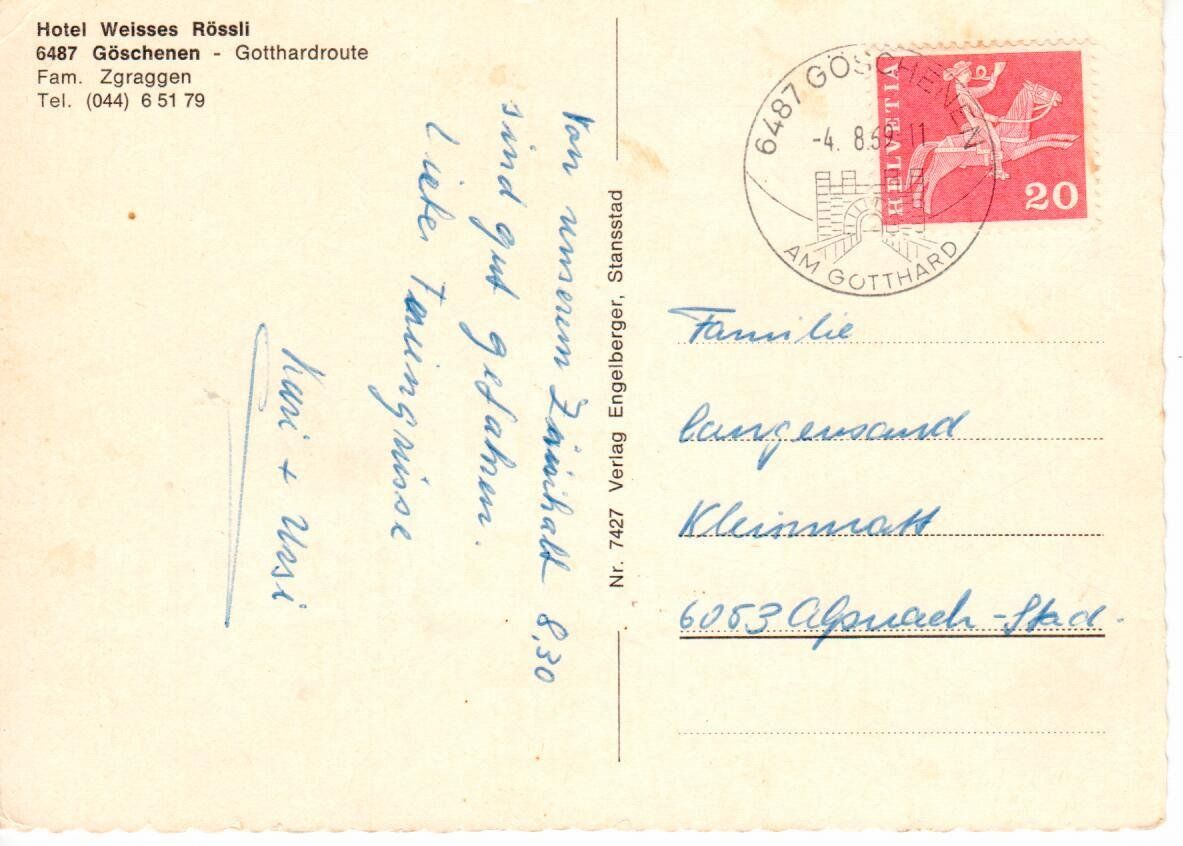 Hotel Weisses Rössli
6487 Göschenen - Gotthardroute
Fam. Zgraggen
Tel. (044) 6 51 79
Von unserem 8,30
sind gut gefahren.
Liebe
Kari + Ursi
Nr. 7427 Verlag Engelberger, Stansstad
6487 GÖSCHENEN
-4. 8.69-11
AM GOTTHARD
HELVETIA
20
Familie
Langensand
Kleinmatt
6053 Alpnach-Stad.